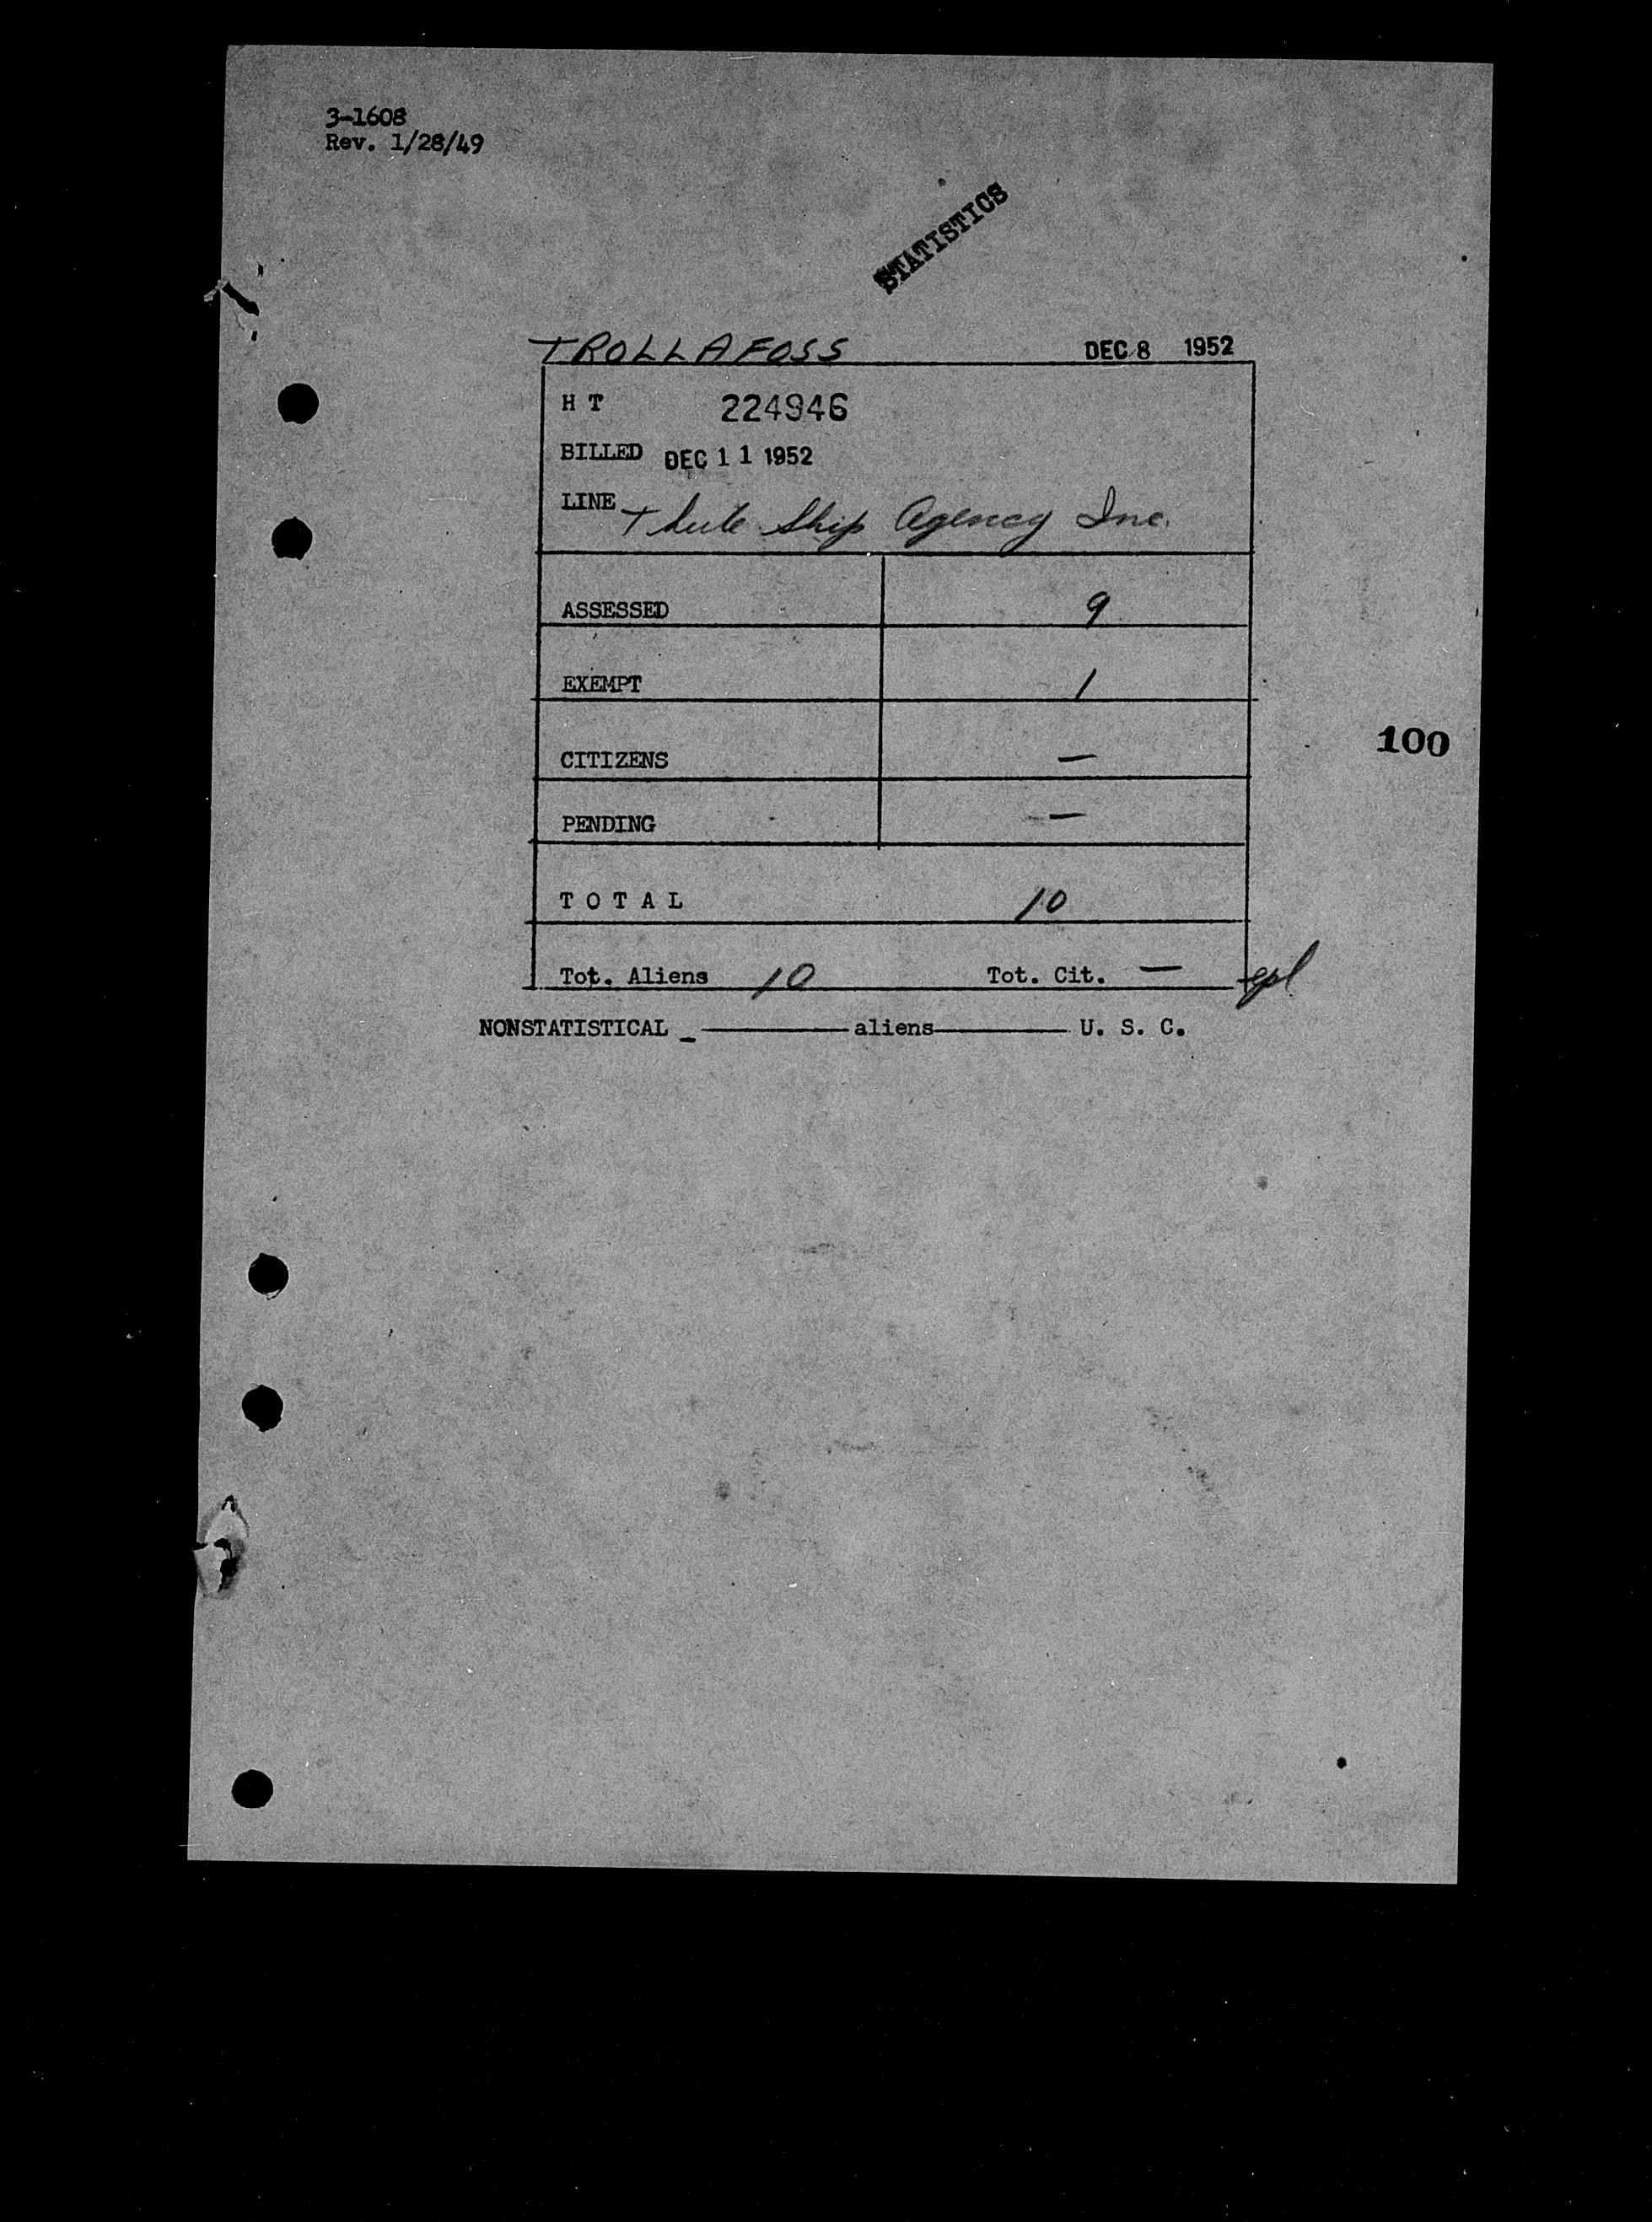 3-1608
Rev. 1/28/49
STATISTICS
TROLLAFOSS DEC 8 1952
H T 224946
BILLED DEC 11 1952
LINE Thule Ship Agency Inc.
ASSESSED 9
EXEMPT 1
CITIZENS —
100
PENDING —
T O T A L 10
Tot. Aliens 10 Tot. Cit. —
NONSTATISTICAL _ ———— aliens ———— U. S. C.